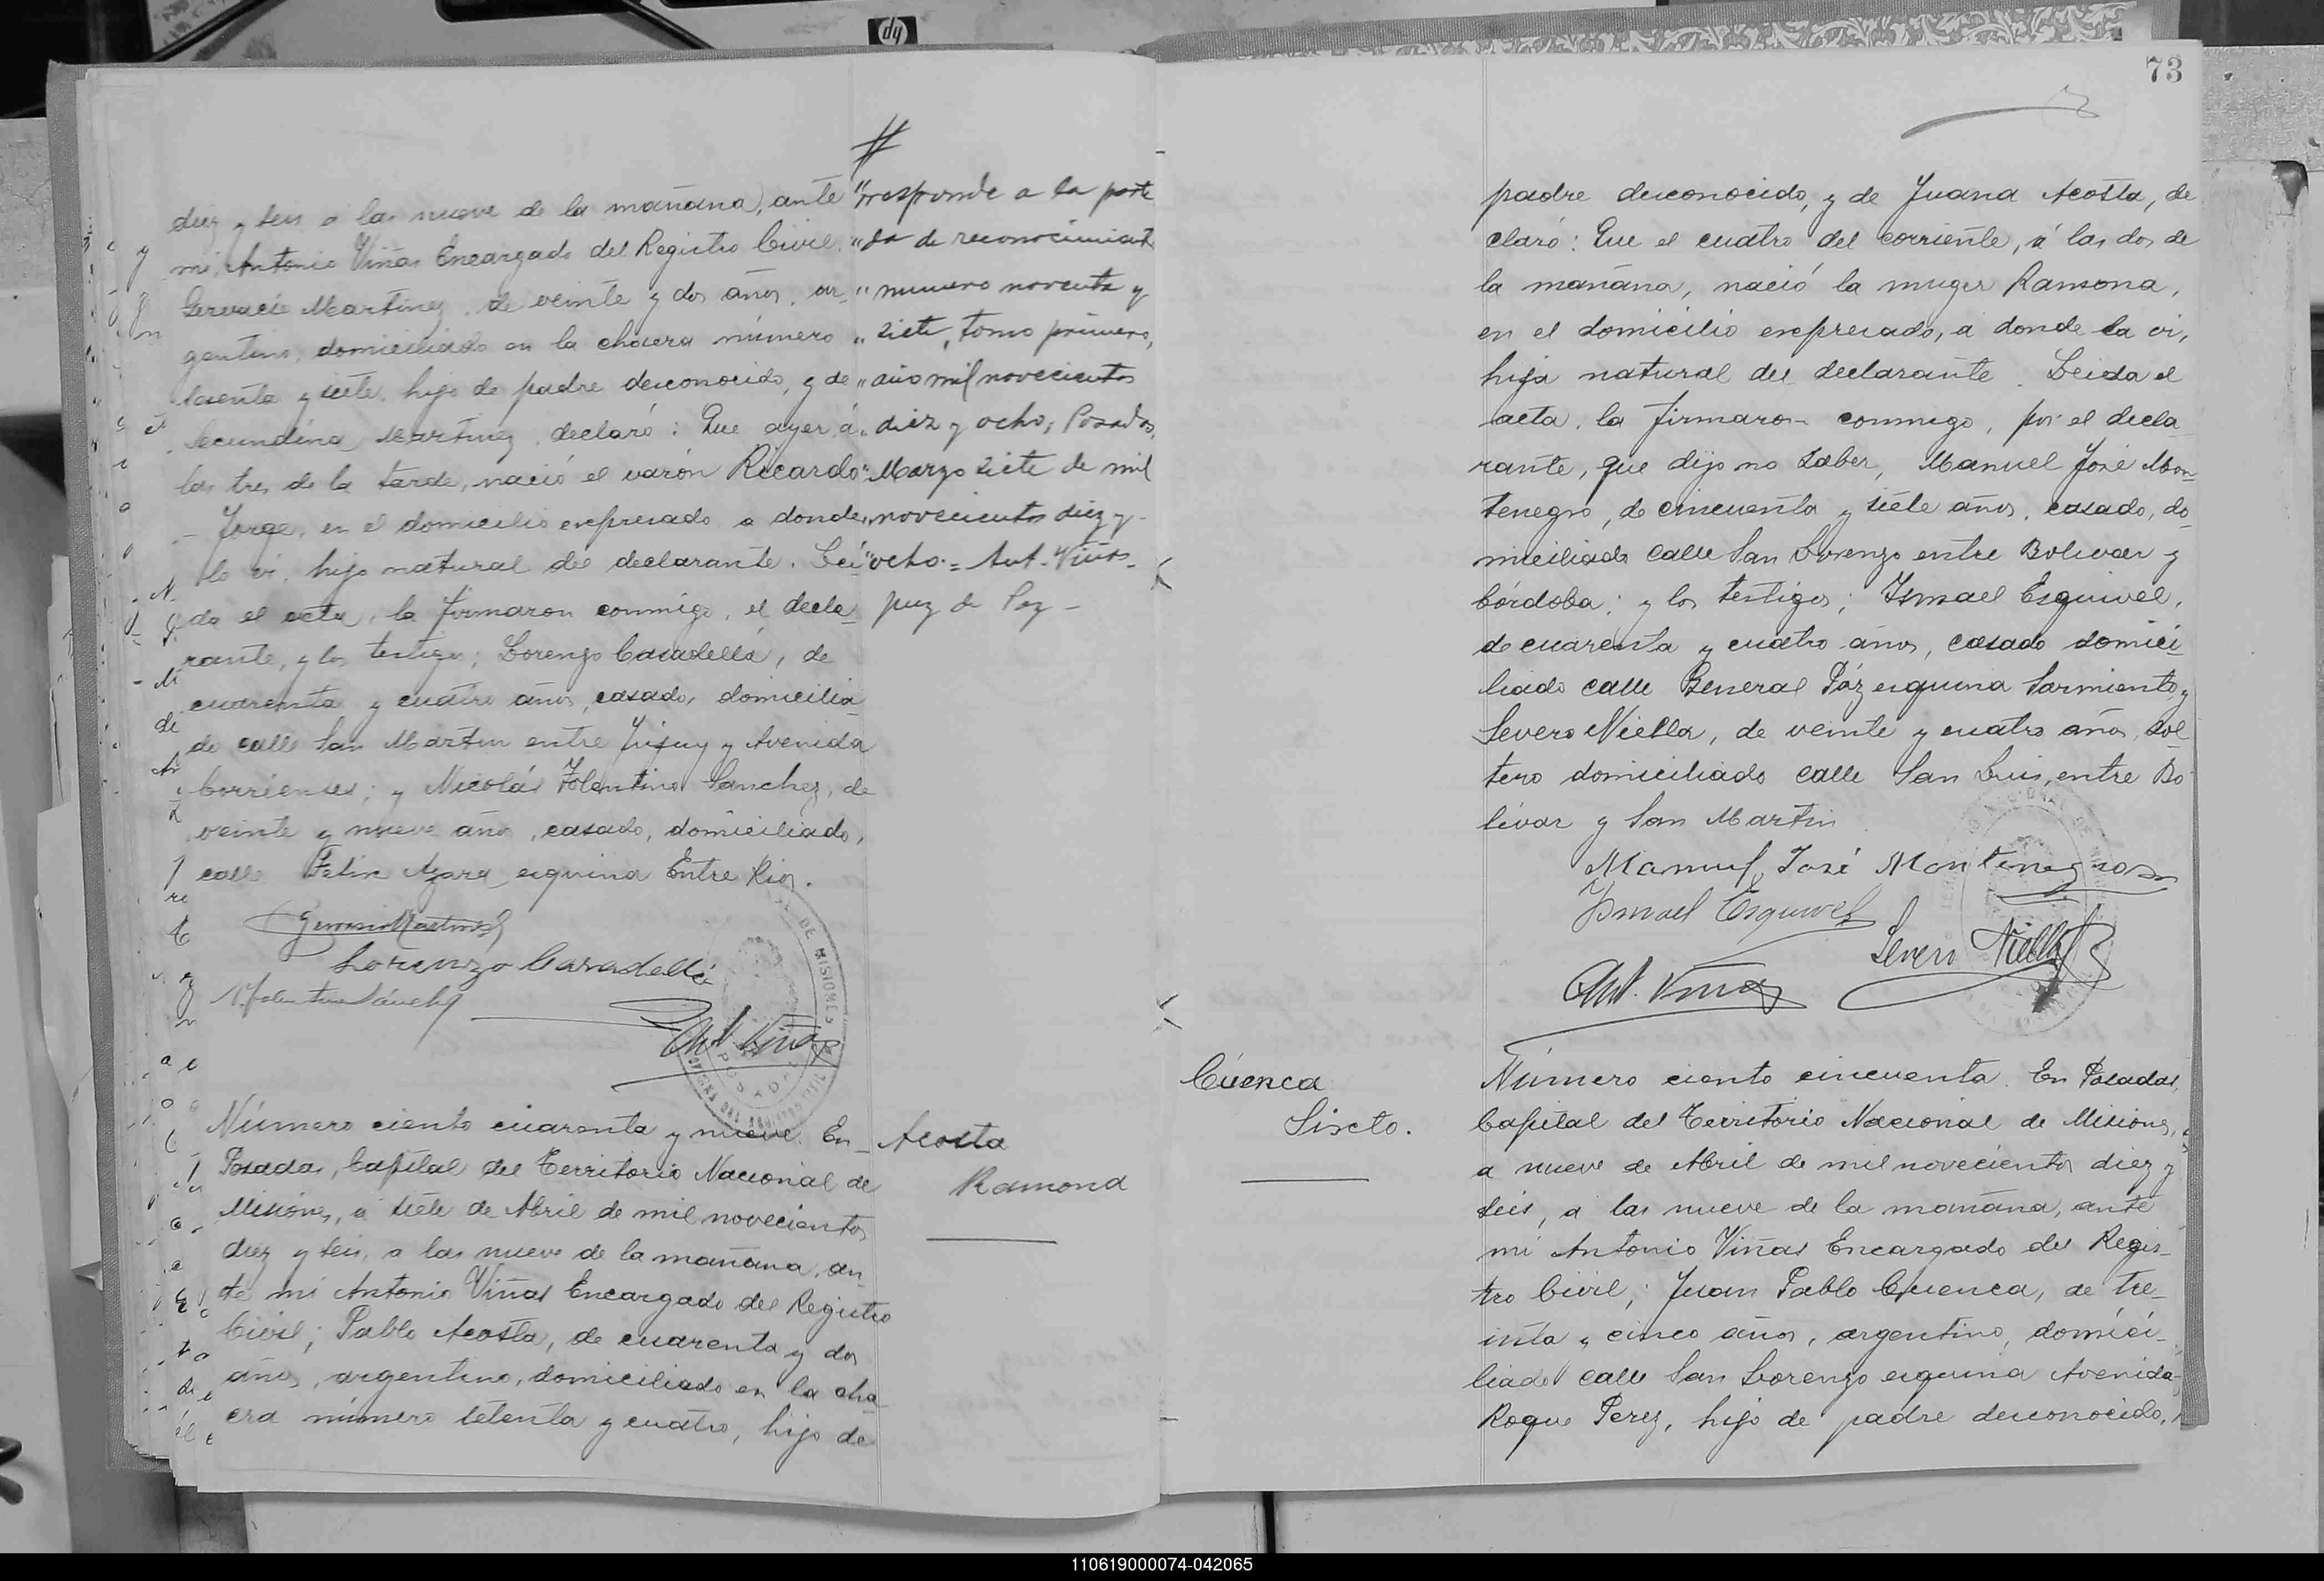 hp
#
diez y seis, a las nueve de la mañana, ante
mi, Antonio Viñas Encargado del Registro Civil
Gervacio Martinez, de veinte y dos años, ar-
gentino, domiciliado en la chacra número
sesenta y siete, hijo de padre desconocido, y de
Secundina Martinez, declaró: Que ayer, á
las tres de la tarde, nació el varón Ricardo
Jorge, en el domicilio expresado a donde
lo vi, hijo natural del declarante. Leí-
da el acta, la firmaron conmigo, el decla-
rante, y los testigos; Lorenzo Casadellá, de
cuarenta y cuatro años, casado, domicilia-
do calle San Martin entre Jujuy y Avenida
Corrientes; y Nicolás Tolentino Sanchez, de
veinte y nueve años, casado, domiciliado,
calle Felix Azara esquina Entre Rios.
Gervasio Martinez
Lorenzo Casadellá
N. Tolentino Sánchez
Ant. Viñas
"rresponde a la parti
"da de reconocimient
"numero noventa y
"siete, tomo primero,
"año mil novecientos
"diez y ocho, Posadas,
"Marzo siete de mil
"novecientos diez y
"ocho.= Ant. Viñas-
juez de Paz -
DE MISIONES
POSADAS
Número ciento cuarenta y nueve. En
Posadas, Capital del Territorio Nacional de
Misiones, a siete de Abril de mil novecientos
diez y seis, a las nueve de la mañana, an-
te mi Antonio Viñas Encargado del Registro
Civil; Pablo Acosta, de cuarenta y dos
años, argentino, domiciliado en la cha-
cra número setenta y cuatro, hijo de
Acosta
Ramona
73
padre desconocido, y de Juana Acosta, de
claró: Que el cuatro del corriente, á las dos de
la mañana, nació la muger Ramona,
en el domicilio expresado, a donde la vi,
hija natural del declarante. Leida el
acta, la firmaron conmigo, por el decla-
rante, que dijo no saber, Manuel José Mon-
tenegro, de cincuenta y siete años, casado, do-
miciliado calle San Lorenzo entre Bolivar y
Córdoba; y los testigos; Ismael Esquivel,
de cuarenta y cuatro años, casado domici-
liado calle General Páz esquina Sarmiento, y
Severo Niella, de veinte y cuatro años, sol-
tero domiciliado calle San Luis, entre Bo-
livar y San Martin
Manuel José Montenegro
Ismael Esquivel
Severo Niella
Ant. Viñas
Cuenca
Sixto.
Número ciento cincuenta. En Posadas,
Capital del Territorio Nacional de Misiones,
a nueve de Abril de mil novecientos diez y
seis, a las nueve de la mañana, ante
mi Antonio Viñas Encargado del Regis-
tro Civil; Juan Pablo Cuenca, de tre-
inta y cinco años, argentino, domici-
liado calle San Lorenzo esquina Avenida
Roque Perez, hijo de padre desconocido,
110619000074-042065